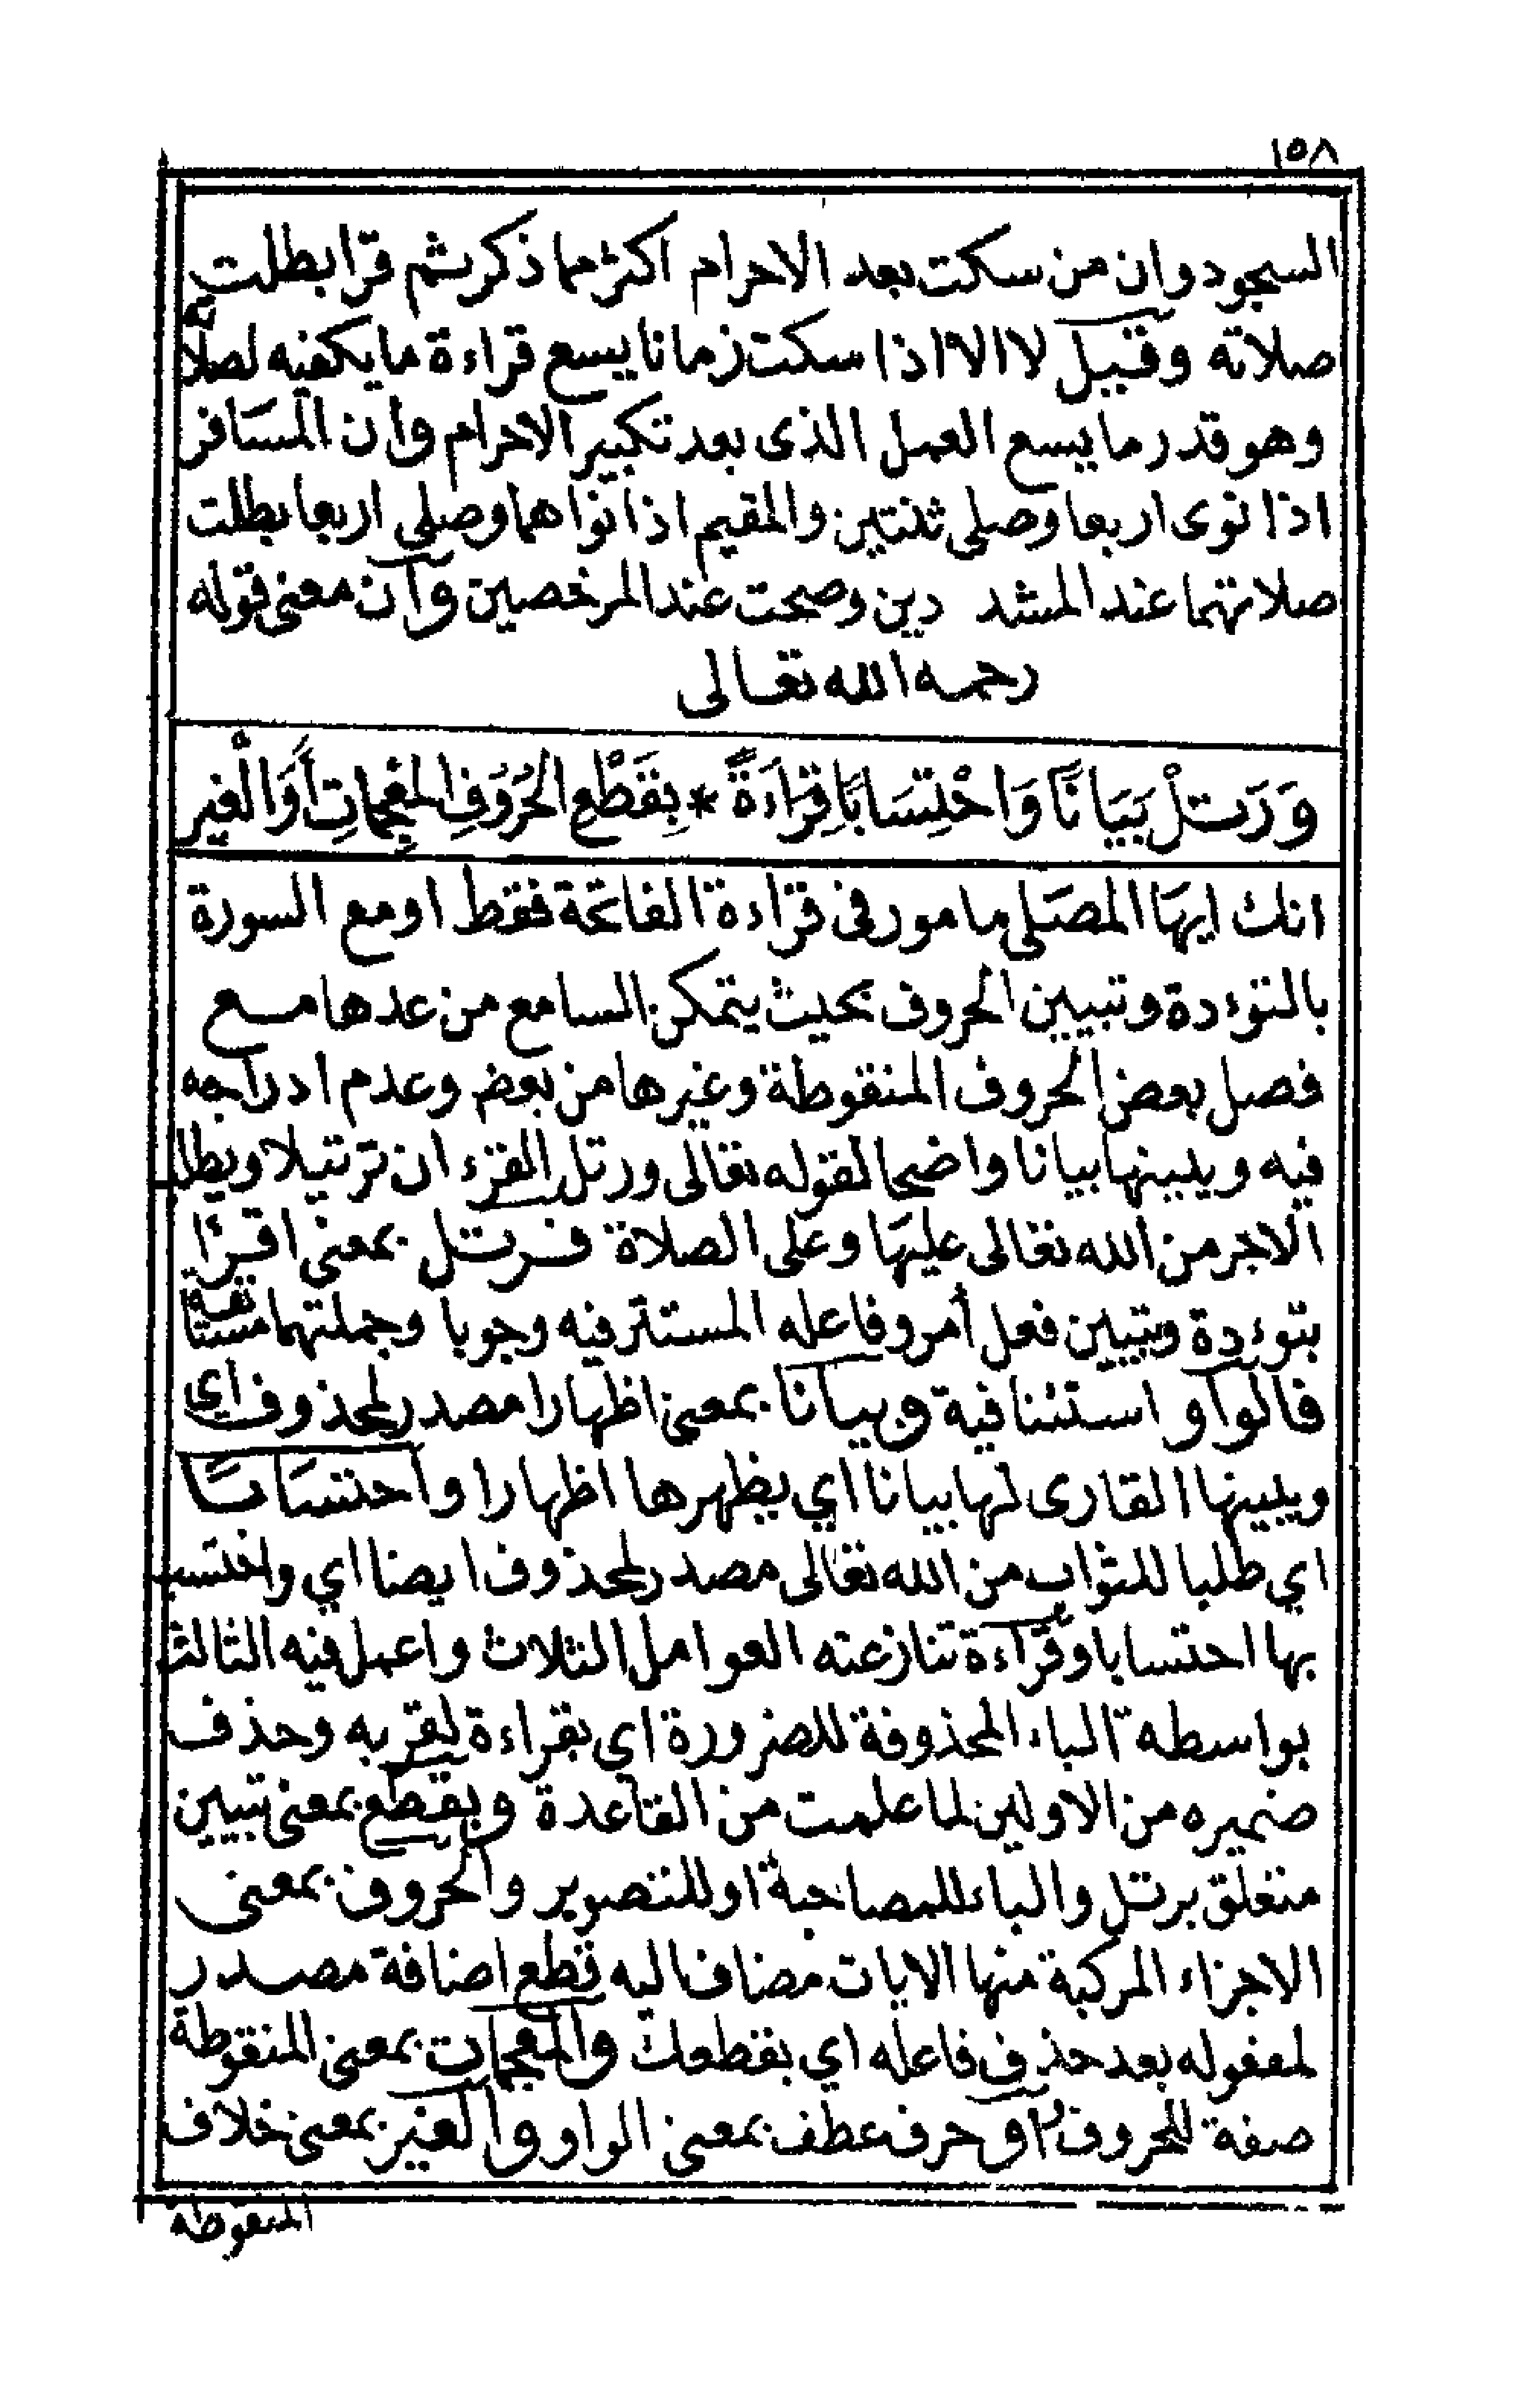 ١٥٨
السجود وان من سكت بعد الاحرام اكثر مما ذكر ثم قرا بطلت
صلاته وقيل لا الا اذا سكت زمانا يسع قراءة ما يكفيه لصلاته
وهو قدر ما يسع العمل الذى بعد تكبير الاحرام وان المسافر
اذا نوى اربعا وصلى ثنتين والمقيم اذا نواهما وصلى اربعا بطلت
صلاتهما عند المشددين وصحت عند المرخصين وان معنى قوله
رحمه الله تعالى
وَرَتِلْ بَيَانًا وَاحْتِسَابًا قِرَاءَةً * بِقَطْعِ الحُرُوفِ المُعْجَمَاتِ أَوَالْغَيْرِ
انك ايها المصلى مامور فى قراءة الفاتحة فقط او مع السورة
بالتوءدة وتبيين الحروف بحيث يتمكن السامع من عدها مع
فصل بعض الحروف المنقوطة وغيرها من بعض وعدم ادراجه
فيه ويبينها بيانا واضحا لقوله تعالى ورتل القرءان ترتيلا ويطلب
الاجر من الله تعالى عليها وعلى الصلاة فرتل بمعنى اقرأ
بتوءدة وتبيين فعل أمر وفاعله المستتر فيه وجوبا وجملتهما مستانفة
فالواو استئنافية وبيانا بمعنى اظهارا مصدر لمحذوف اي
ويبينها القارى لها بيانا اي يظهرها اظهارا واحتسابا
اي طلبا للثواب من الله تعالى مصدر لمحذوف ايضا اي واحتسب
بها احتسابا وقراءة تنازعته العوامل الثلاث واعمل فيه الثالث
بواسطة الباء المحذوفة للضرورة اي بقراءة لقربه وحذف
ضميره من الاولين لما علمت من القاعدة وبقطع بمعنى تبيين
متعلق برتل والباء للمصاحبة او للتصوير والحروف بمعنى
الاجزاء المركبة منها الايات مضاف اليه قطع اضافة مصدر
لمفعوله بعد حذف فاعله اي بقطعك والمعجمات بمعنى المنقوطة
صفة للحروف او حرف عطف بمعنى الواو والغير بمعنى خلاف
المنقوطة